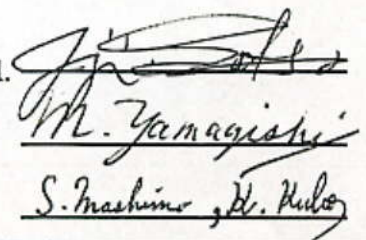 M. Yamagishi
S. Mashimo, K. Kubo